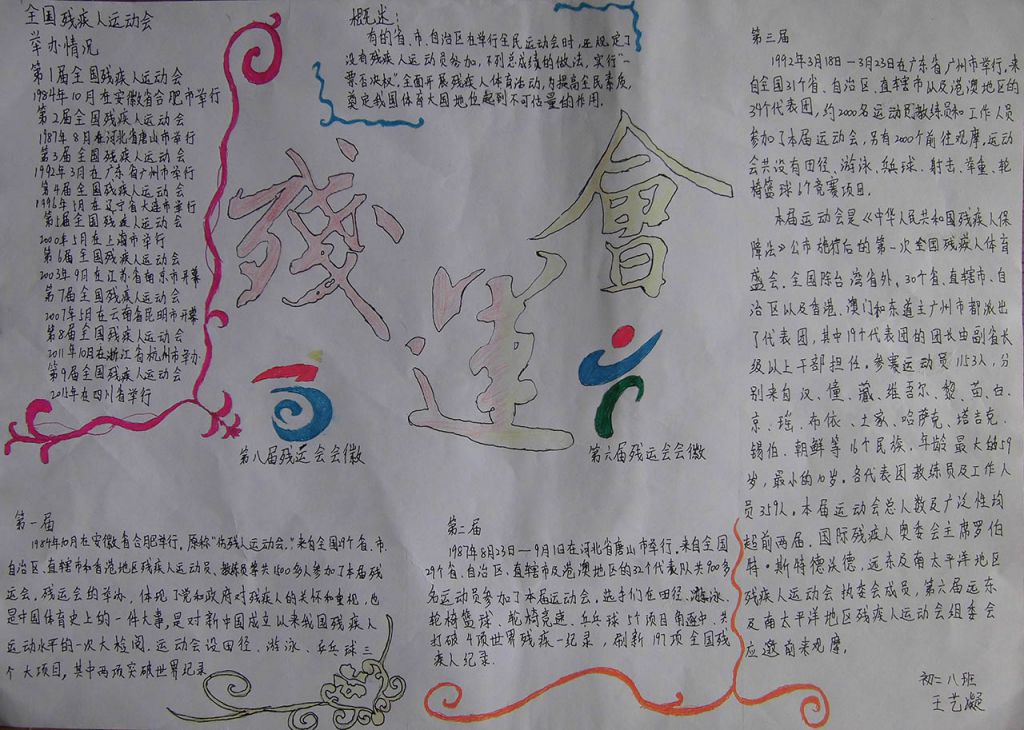 全国残疾人运动会
举办情况
第1届全国残疾人运动会
1984年10月在安徽省合肥市举行
第2届全国残疾人运动会
1987年8月在河北省唐山市举行
第3届全国残疾人运动会
1992年3月在广东省广州市举行
第4届全国残疾人运动会
1996年5月在辽宁省大连市举行
第5届全国残疾人运动会
2000年5月在上海市举行
第6届全国残疾人运动会
2003年9月在江苏省南京市开幕
第7届全国残疾人运动会
2007年5月在云南省昆明市开幕
第8届全国残疾人运动会
2011年10月在浙江省杭州市举办
第9届全国残疾人运动会
2015年在四川省举行
概述:
有的省、市、自治区在举行全民运动会时,还规定了
没有残疾人运动员参加,不列总成绩的做法,实行"一
票否决权",全面开展残疾人体育活动,为提高全民素质,
奠定我国体育大国地位起到不可估量的作用.
殘運會
第八届残运会会徽
第六届残运会会徽
第一届
1984年10月在安徽省合肥举行,原称"伤残人运动会."来自全国29个省、市、
自治区、直辖市和香港地区残疾人运动员、教练员等共1500多人参加了本届残
运会.残运会的举办,体现了党和政府对残疾人的关怀和重视,也
是中国体育史上的一件大事,是对新中国成立以来我国残疾人
运动水平的一次大检阅.运动会设田径、游泳、乒乓球三
个大项目,其中两项突破世界纪录
第二届
1987年8月23日—9月1日在河北省唐山市举行.来自全国
29个省、自治区、直辖市及港澳地区的32个代表队共800多
名运动员参加了本届运动会.选手们在田径、游泳、
轮椅篮球、轮椅竞速、乒乓球5个项目角逐中,共
打破4项世界残疾人纪录,刷新197项全国残
疾人纪录.
第三届
1992年3月18日—3月23日在广东省广州市举行,来
自全国31个省、自治区、直辖市以及港澳地区的
34个代表团,约2000名运动员教练员和工作人员
参加了本届运动会,另有2000个前往观摩,运动
会共设有田径、游泳、乒乓球、射击、举重、轮
椅篮球6个竞赛项目.
本届运动会是《中华人民共和国残疾人保
障法》公布施行后的第一次全国残疾人体育
盛会.全国除台湾省外,30个省、直辖市、自
治区以及香港、澳门和东道主广州市都派出
了代表团,其中19个代表团的团长由副省长
级以上干部担任.参赛运动员1153人,分
别来自汉、僮、藏、维吾尔、黎、苗、白、
京、瑶、布依、土家、哈萨克、塔吉克、
锡伯、朝鲜等16个民族,年龄最大的59
岁,最小的10岁.各代表团教练员及工作人
员359人.本届运动会总人数及广泛性均
超前两届.国际残疾人奥委会主席罗伯
特·斯特德沃德,远东及南太平洋地区
残疾人运动会执委会成员,第六届远东
及南太平洋地区残疾人运动会组委会
应邀前来观摩.
初二八班
王艺凝